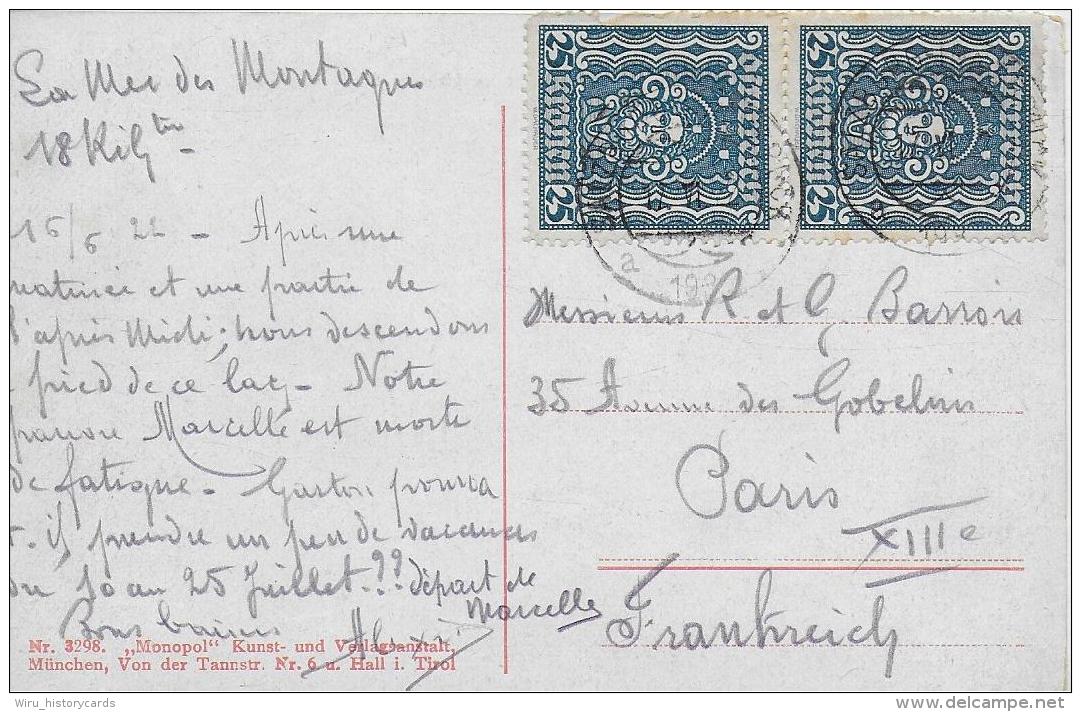 La Mer des Montagnes
18 Kil
16/6 22 - Après une
matinée et une partie de
l'après Midi, nous descendons
pied de ce lac - Notre
pauvre Marcelle est morte
de fatigue - Gaston pourra
t-il prendre un peu de vacances
du 10 au 25 Juillet ?? départ de
Marcelle
Bons baisers
25 Kronen 25
25 Kronen 25
a
192
Messieurs R et G. Barrois
35 Avenue des Gobelins
Paris
XIIIe
Frankreich
Nr. 3298. „Monopol“ Kunst- und Verlagsanstalt,
München, Von der Tannstr. Nr. 6 u. Hall i. Tirol
Wiru_historycards
delcampe.net